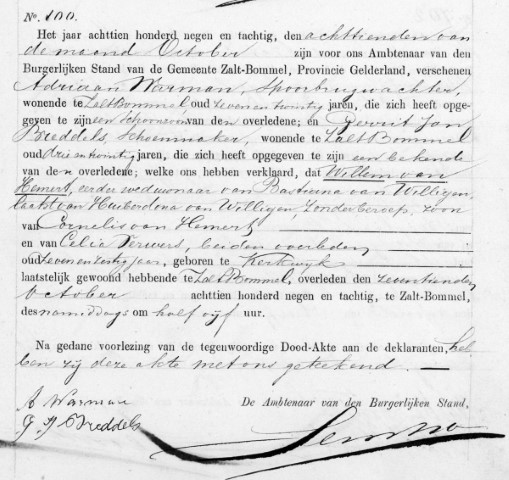 No. 100.
Het jaar achttien honderd negen en tachtig, den achttienden van
de maand October zijn voor ons Ambtenaar van den
Burgerlijken Stand van de Gemeente Zalt-Bommel, Provincie Gelderland, verschenen
Adriaan Warman, Spoorbrugwachter,
wonende te Zaltbommel oud zeven en twintig jaren, die zich heeft opge-
geven te zijn een schoonzoon van den overledene; en Gerrit Jan
Breddels, Schoenmaker, wonende te Zalt Bommel
oud drie en twintig jaren, die zich heeft opgegeven te zijn een bekende
van den overledene; welke ons hebben verklaard, dat Willem van
Hemert, eerder weduwnaar van Bastiana van Willigen,
laatst van Huiberdona van Willigen, zonder beroep, zoon
van Cornelis van Hemert
en van Celia Verwers, beiden overleden
oud zeven en zestig jaar, geboren te Kerkwijk
laatstelijk gewoond hebbende te Zalt Bommel, overleden den zeventienden
October achttien honderd negen en tachtig, te Zalt-Bommel,
des namiddags om half vijf uur.
Na gedane voorlezing van de tegenwoordige Dood-Akte aan de deklaranten, heb-
ben zij deze akte met ons geteekend.
A Warman
De Ambtenaar van den Burgerlijken Stand,
G J Breddels